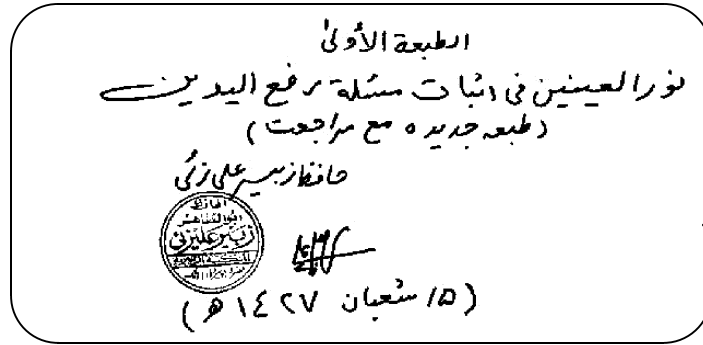 الطبعة الأولىٰ
نور العينين فی اثبات مسئلة رفع اليدين
(طبعه جديده مع مراجعت)
حافظ زبير علی زئی
الحافظ
ابو الطاهر
زبیر علیزئی
(۱۵ شعبان ۱٤۲۷ھ)